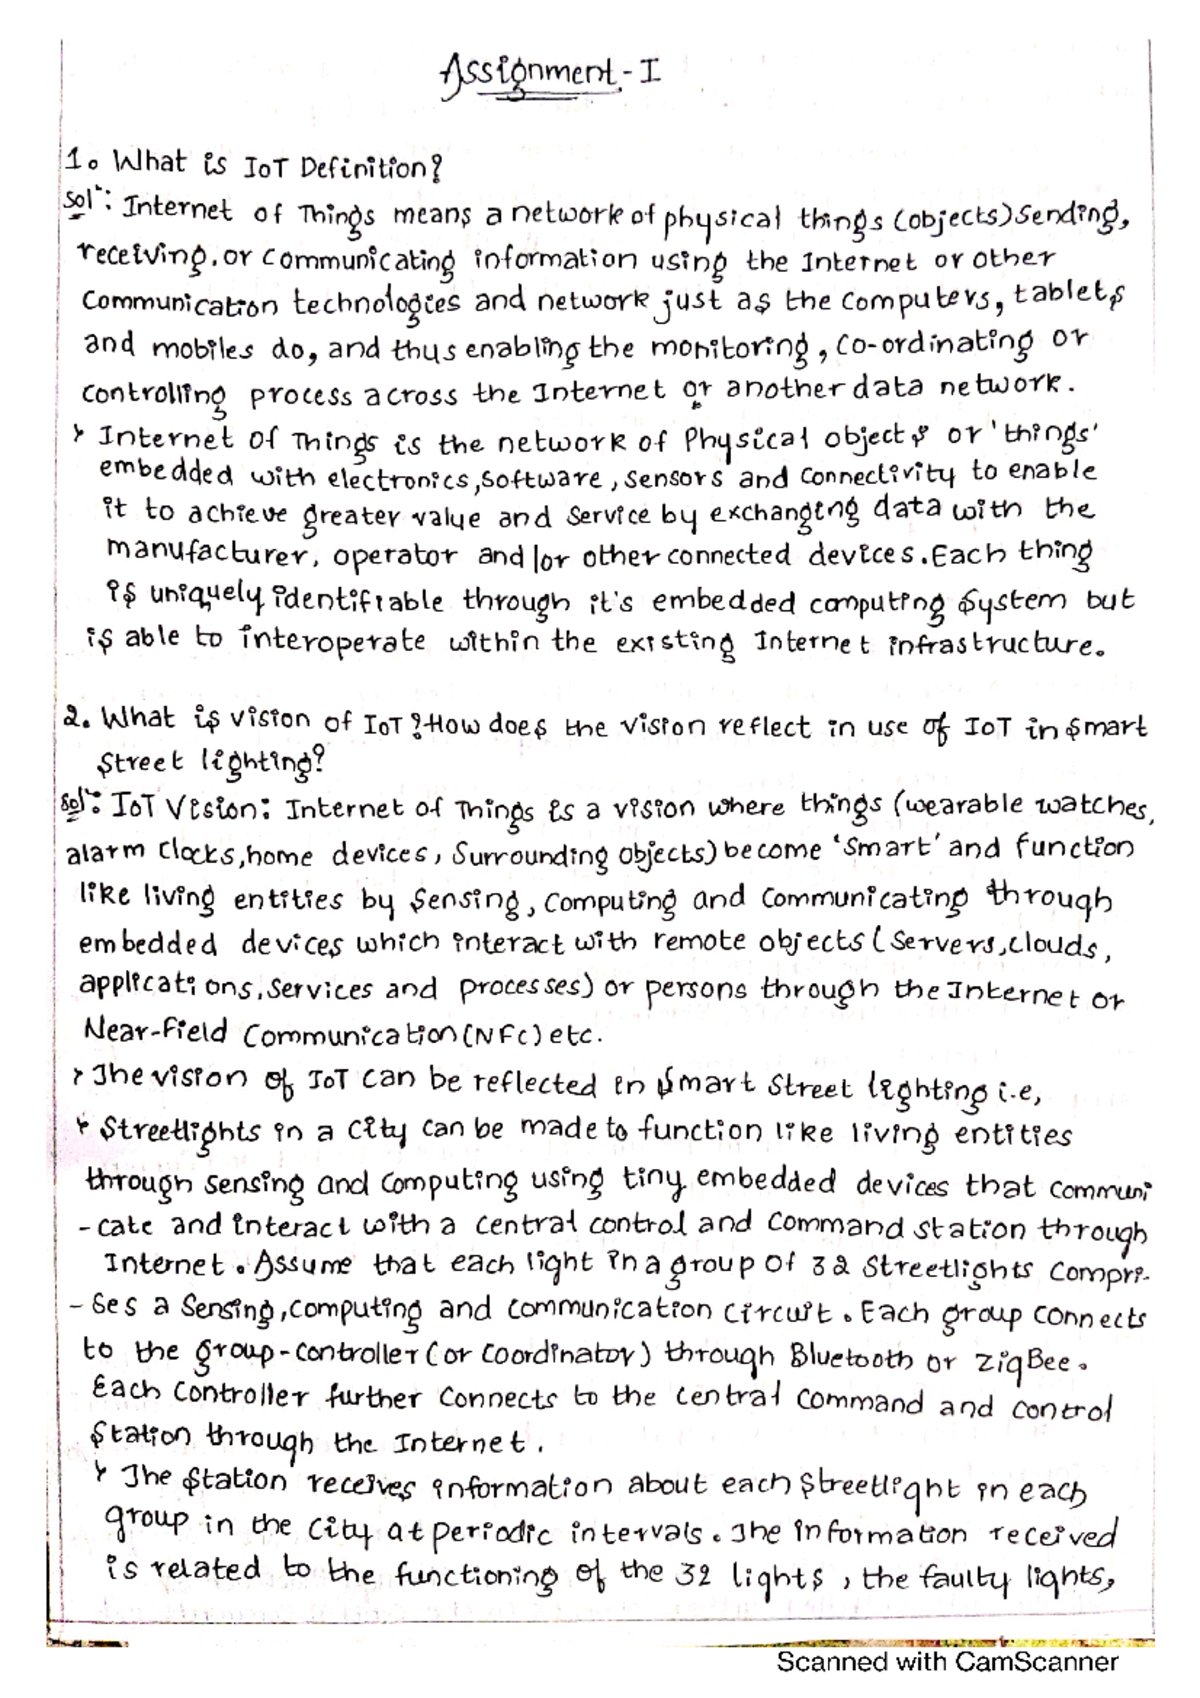 Assignment - I
1. What is IoT Definition?
Sol: Internet of Things means a network of physical things (objects) Sending,
receiving, or communicating information using the Internet or other
Communication technologies and network just as the Computers, tablets
and mobiles do, and thus enabling the monitoring, Co-ordinating or
controlling process across the Internet or another data network.
Internet Of Things is the network of Physical objects or 'things'
embedded with electronics, software, sensors and connectivity to enable
it to achieve greater value and service by exchanging data with the
manufacturer, operator and/or other connected devices. Each thing
is uniquely identifiable through it's embedded computing system but
is able to interoperate within the existing Internet infrastructure.
2. What is vision of IoT? How does the vision reflect in use of IoT in smart
street lighting?
Sol: IoT Vision: Internet of Things is a vision where things (wearable watches,
alarm clocks, home devices, surrounding objects) become 'Smart' and function
like living entities by sensing, computing and communicating through
embedded devices which interact with remote objects (Servers, clouds,
applications, services and processes) or persons through the Internet or
Near-Field Communication (NFC) etc.
The vision of IoT can be reflected in smart Street lighting i.e,
Streetlights in a city can be made to function like living entities
through sensing and computing using tiny embedded devices that communi
-cate and interact with a central control and command station through
Internet. Assume that each light in a group of 32 streetlights compri-
-ses a sensing, computing and communication circuit. Each group connects
to the group-controller (or coordinator) through Bluetooth or ZigBee.
Each controller further connects to the central command and control
station through the Internet.
The station receives information about each streetlight in each
group in the city at periodic intervals. The information received
is related to the functioning of the 32 lights, the faulty lights,
Scanned with CamScanner